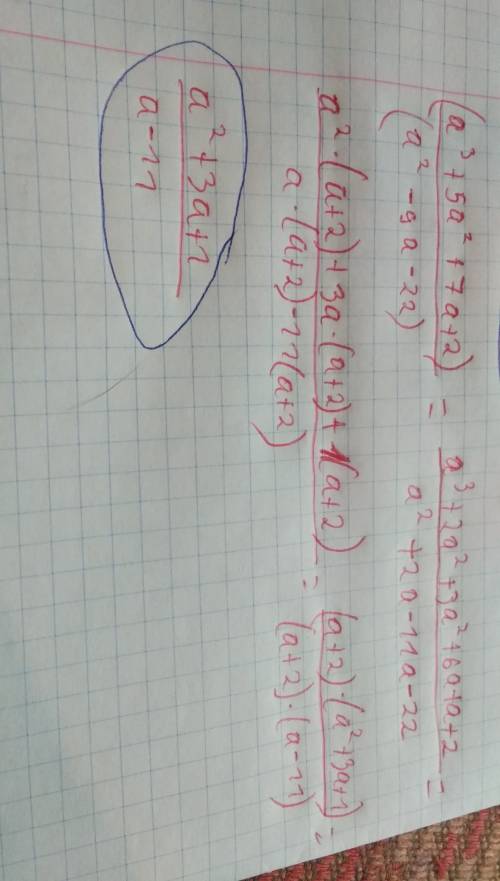 (a³+5a²+7a+2) / (a²-9a-22) = a³+2a²+3a²+6a+a+2 / a²+2a-11a-22 =
a²·(a+2)+3a·(a+2)+1(a+2) / a·(a+2)-11(a+2) = (a+2)·(a²+3a+1) / (a+2)·(a-11) =
a²+3a+1 / a-11